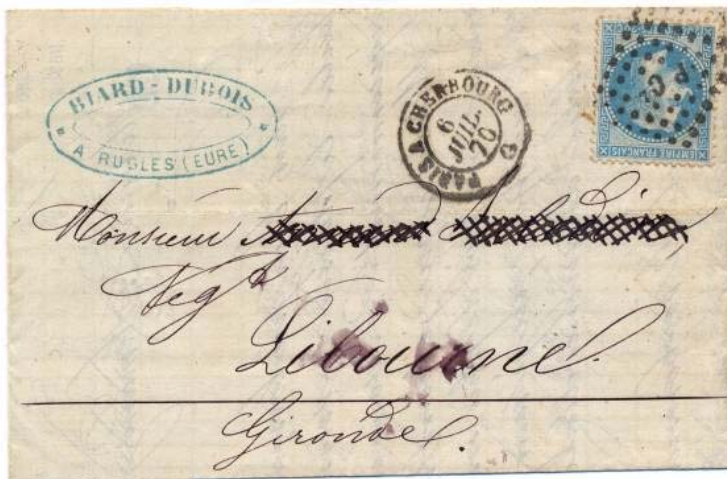 BIARD - DUBOIS
A RUGLES (EURE)
PARIS A CHERBOURG
6
JUIL.
70
EMPIRE FRANÇAIS
Monsieur
Negt
Libourne
Gironde.